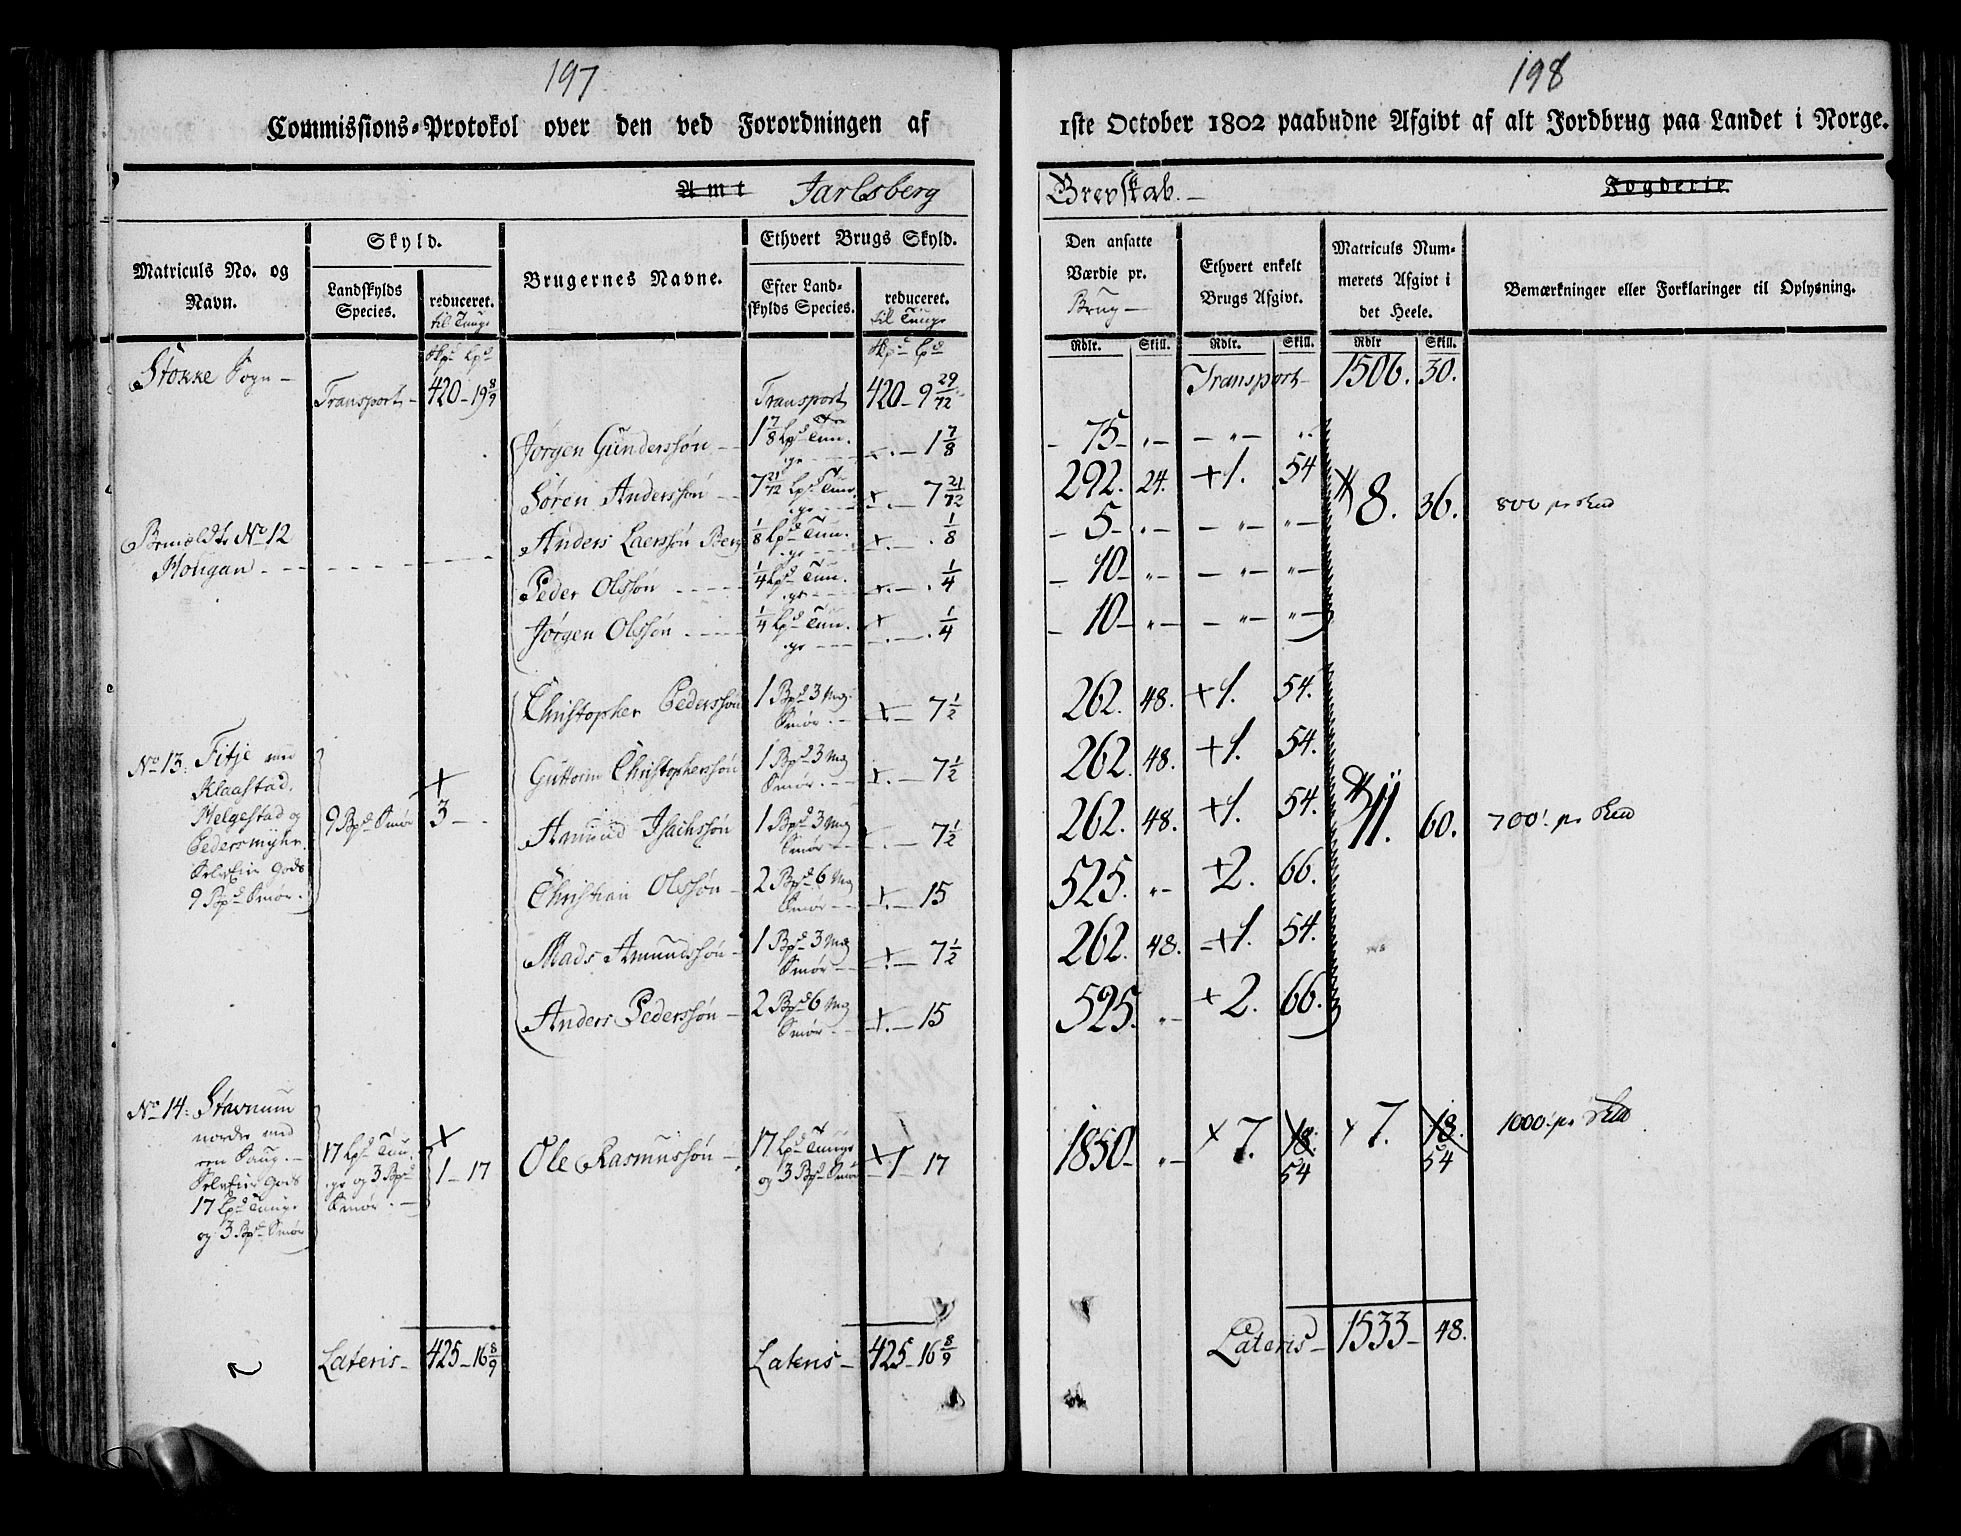 197
Commissions-Protokol over den ved Forordningen af
Amt Jarlsberg
Matriculs No. og Navn.
Skyld.
Landskylds Species.
reduceret. til Tunge
Brugernes Navne.
Ethvert Brugs Skyld.
Efter Landskylds Species.
reduceret. til Tunge
Stokke Sogn
Transport 420 - 19 8/9
Transport 420 - 9 29/72
Jørgen Gunderssøn 1 7/8 Lpd Tunge 1 7/8
Søren Anderssøn 7 21/72 Lpd Tunge 7 21/72
Bemeldte No 12
Haugan
Anders Laerssøn Berg 1/8 Lpd Tunge 1/8
Peder Olssøn 1/4 Lpd Tunge 1/4
Jørgen Olssøn 1/4 Lpd Tunge 1/4
Christopher Pederssøn 1 Bpd 3 Mg Smør 7 1/2
No 13: Fitje med
Klaastad,
Helgestad og
Pedersmyhr.
SelvEier Gods
9 Bpd Smør.
9 Bpd Smør 3
Guttorm Christopherssøn 1 Bpd 3 Mg Smør 7 1/2
Amund Isachssøn 1 Bpd 3 Mg Smør 7 1/2
Christian Olssøn 2 Bpd 6 Mg Smør 15
Mads Amundssøn 1 Bpd 3 Mg Smør 7 1/2
Anders Pederssøn 2 Bpd 6 Mg Smør 15
No 14: Stavnum
nordre med
SelvEier Gods
17 Lpd Tunge
og 3 Bpd Smør
17 Lpd Tunge og 3 Bpd Smør 1 - 17
Ole Rasmussøn 17 Lpd Tunge og 3 Bpd Smør 1 17
Lateris 425 - 16 8/9
Lateris 425 - 16 8/9
198
1ste October 1802 paabudne Afgivt af alt Jordbrug paa Landet i Norge.
Grevskab. Fogderie
Den ansatte Værdie pr. Brug
Ethvert enkelt Brugs Afgivt.
Matriculs Nummerets Afgivt i det Heele.
Bemærkninger eller Forklaringer til Oplysning.
Rdlr. Skill. Rdlr. Skill. Rdlr Skill.
Transport 1506. 30.
75 " " "
292. 24. 1. 54
8. 36. 800 pr
5 " " "
10 " " "
10 " " "
262. 48. 1. 54.
262. 48. 1. 54.
262. 48. 1. 54.
11. 60. 700 pr
525. " 2. 66.
262. 48. 1. 54.
525. " 2. 66.
1850 " 7. 18. 54 7. 18. 54 1000 pr
Lateris 1533 - 48.